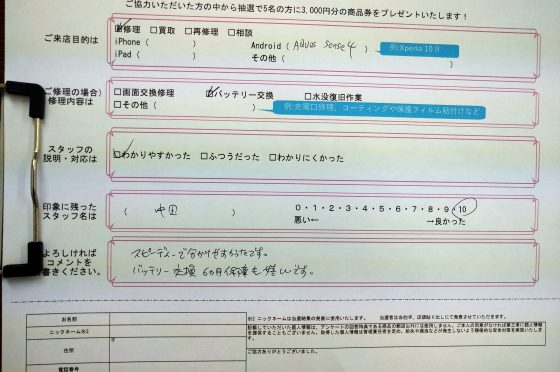 ご協力いただいた方の中から抽選で5名の方に3,000円分の商品券をプレゼントいたします!
ご来店目的は
☑修理 □買取 □再修理 □相談
iPhone ( ) Android ( AQUOS sense4 ) 例:Xperia 10 II
iPad ( ) その他 ( )
(ご修理の場合)
修理内容は
□画面交換修理 ☑バッテリー交換 □水没復旧作業
□その他 ( ) 例:充電口修理、コーティングや保護フィルム貼付けなど
スタッフの
説明・対応は
☑わかりやすかった □ふつうだった □わかりにくかった
印象に残った
スタッフ名は
( 中田 ) 0・1・2・3・4・5・6・7・8・9・10
悪い← →良かった
よろしければ
コメントを
お書きください。
スピーディーで分かりやすかったです。
バッテリー交換 6カ月保障も嬉しいです。
お名前
ニックネーム※2
住所
〒
電話番号
※2 ニックネームは当選結果の発表に使用いたします。 当選者は当社HP、店頭貼り出しにて発表させていただきます。
ご協力ありがとうございました。